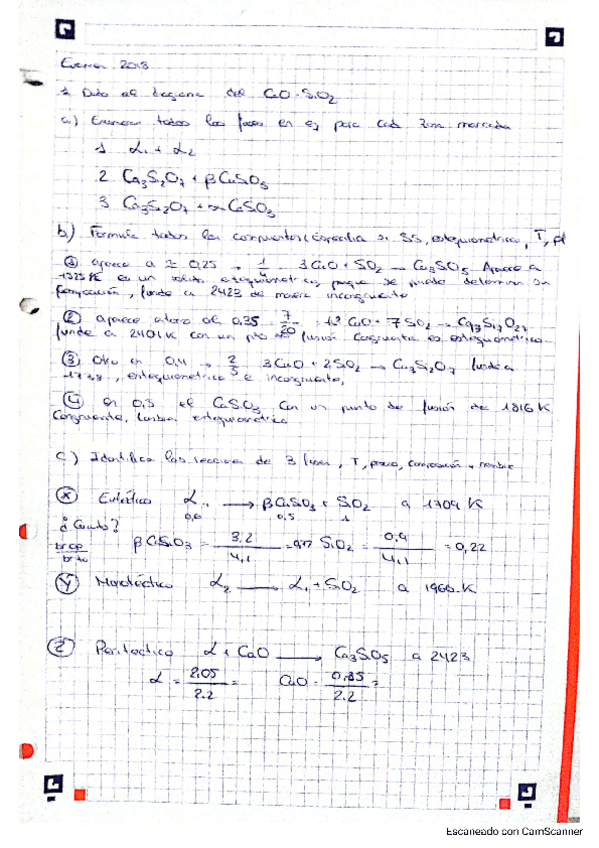 Examen 2018
1. Dado el diagrama del CaO-SiO2
a) Enunciar todas las fases en eq para cada zona marcada
1 L1 + L2
2 Ca3Si2O7 + βCaSiO3
3 Ca3Si2O7 + α CaSiO3
b) Formula todos los compuestos (Especifica si SS, estequiometrico, T, pf
① aparece a ≈ 0,25 , 1/4 3CaO + SiO2 → Ca3SiO5 Aparece a
1323 K es un solido estequiometrico, porque se puede determinar su
composición, funde a 2423 de manera incongruente
② aparece al 0,35 7/20 = 13 CaO + 7SiO2 →
funde a 2401K con un pto de fusión congruente es estequiometrico
③ Otro en 0,4 , 2/5 3CaO + 2SiO2 → Ca3Si2O7 funde a
1738 , estequiometrico e incongruente,
④ en 0,5 el CaSiO3 con un punto de fusión de 1816 K
Congruente, tambien estequiometrico
c) Identifica las reacciones de 3 fases, T, composición y nombre
Ⓧ Eutéctico L → βCaSiO3 + SiO2 a 1709 K
0,6 0,5 1
¿Cuanto?
βCaSiO3 = 3,2/4,1 = SiO2 = 0,9/4,1 = 0,22
Ⓨ Monotéctico L2 → L1 + SiO2 a 1966 K
Ⓩ Peritectico L + CaO → Ca3SiO5 a 2423
L = 2.05/2.2 = CaO = 0,35/2.2 =
Escaneado con CamScanner